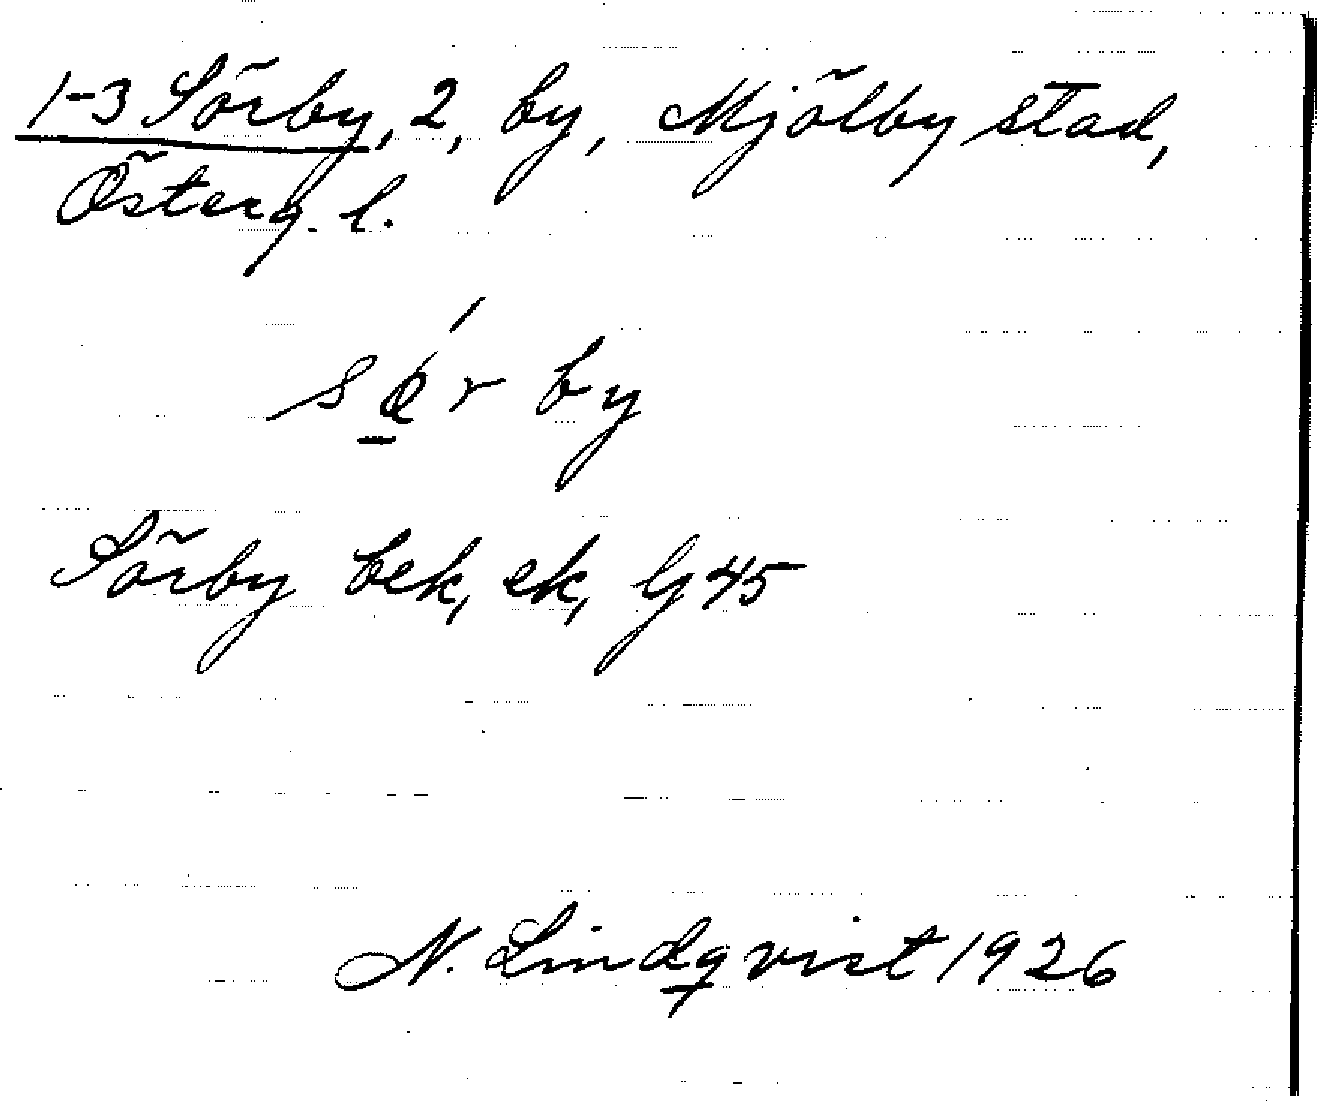 1-3 Sörby, 2, by, Mjölby stad,
Österg. l.
Sörby bek, ek, G 45
N. Lindqvist 1926